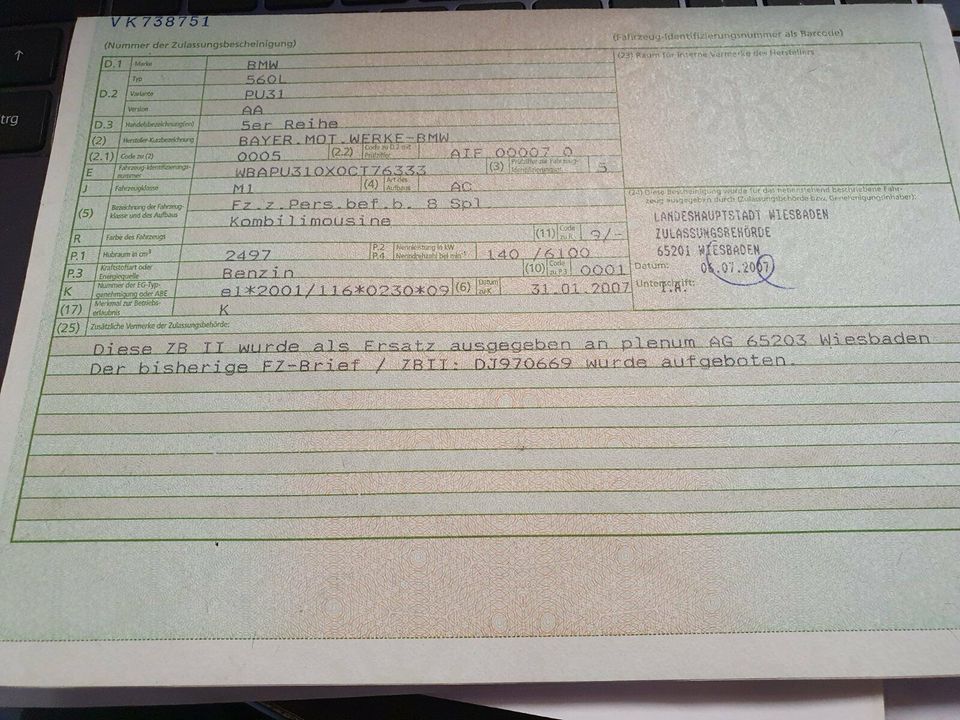 ↑
trg
VK738751
(Nummer der Zulassungsbescheinigung)
(Fahrzeug-Identifizierungsnummer als Barcode)
D.1 Marke BMW
D.2 Typ 560L
Variante PU31
Version AA
D.3 Handelsbezeichnung(en) 5er Reihe
(2) Hersteller-Kurzbezeichnung BAYER.MOT.WERKE-BMW
(2.1) Code zu (2) 0005 (2.2) Code zu D.2 mit Prüfziffer AIF 00007 0
E Fahrzeug-Identifizierungs-nummer WBAPU310X0CT76333 (3) Prüfziffer zur Fahrzeug-Identifizierungsnr. 5
J Fahrzeugklasse M1 (4) Art des Aufbaus AC
(5) Bezeichnung der Fahrzeug-klasse und des Aufbaus Fz.z.Pers.bef.b. 8 Spl
Kombilimousine
R Farbe des Fahrzeugs (11) Code zu R 9/-
P.1 Hubraum in cm³ 2497 P.2 P.4 Nennleistung in kW Nenndrehzahl bei min⁻¹ 140 /6100
P.3 Kraftstoffart oder Energiequelle Benzin (10) Code zu P.3 0001
K Nummer der EG-Typ-genehmigung oder ABE e1*2001/116*0230*09 (6) Datum zu K 31.01.2007
(17) Merkmal zur Betriebs-erlaubnis K
(23) Raum für interne Vermerke des Herstellers
(24) Diese Bescheinigung wurde für das nebenstehend beschriebene Fahr-
zeug ausgegeben durch (Zulassungsbehörde bzw. Genehmigungsinhaber):
LANDESHAUPTSTADT WIESBADEN
ZULASSUNGSBEHÖRDE
65201 WIESBADEN
Datum: 06.07.2007
Unterschrift:
I.A.
(25) Zusätzliche Vermerke der Zulassungsbehörde:
Diese ZB II wurde als Ersatz ausgegeben an plenum AG 65203 Wiesbaden
Der bisherige FZ-Brief / ZBII: DJ970669 wurde aufgeboten.